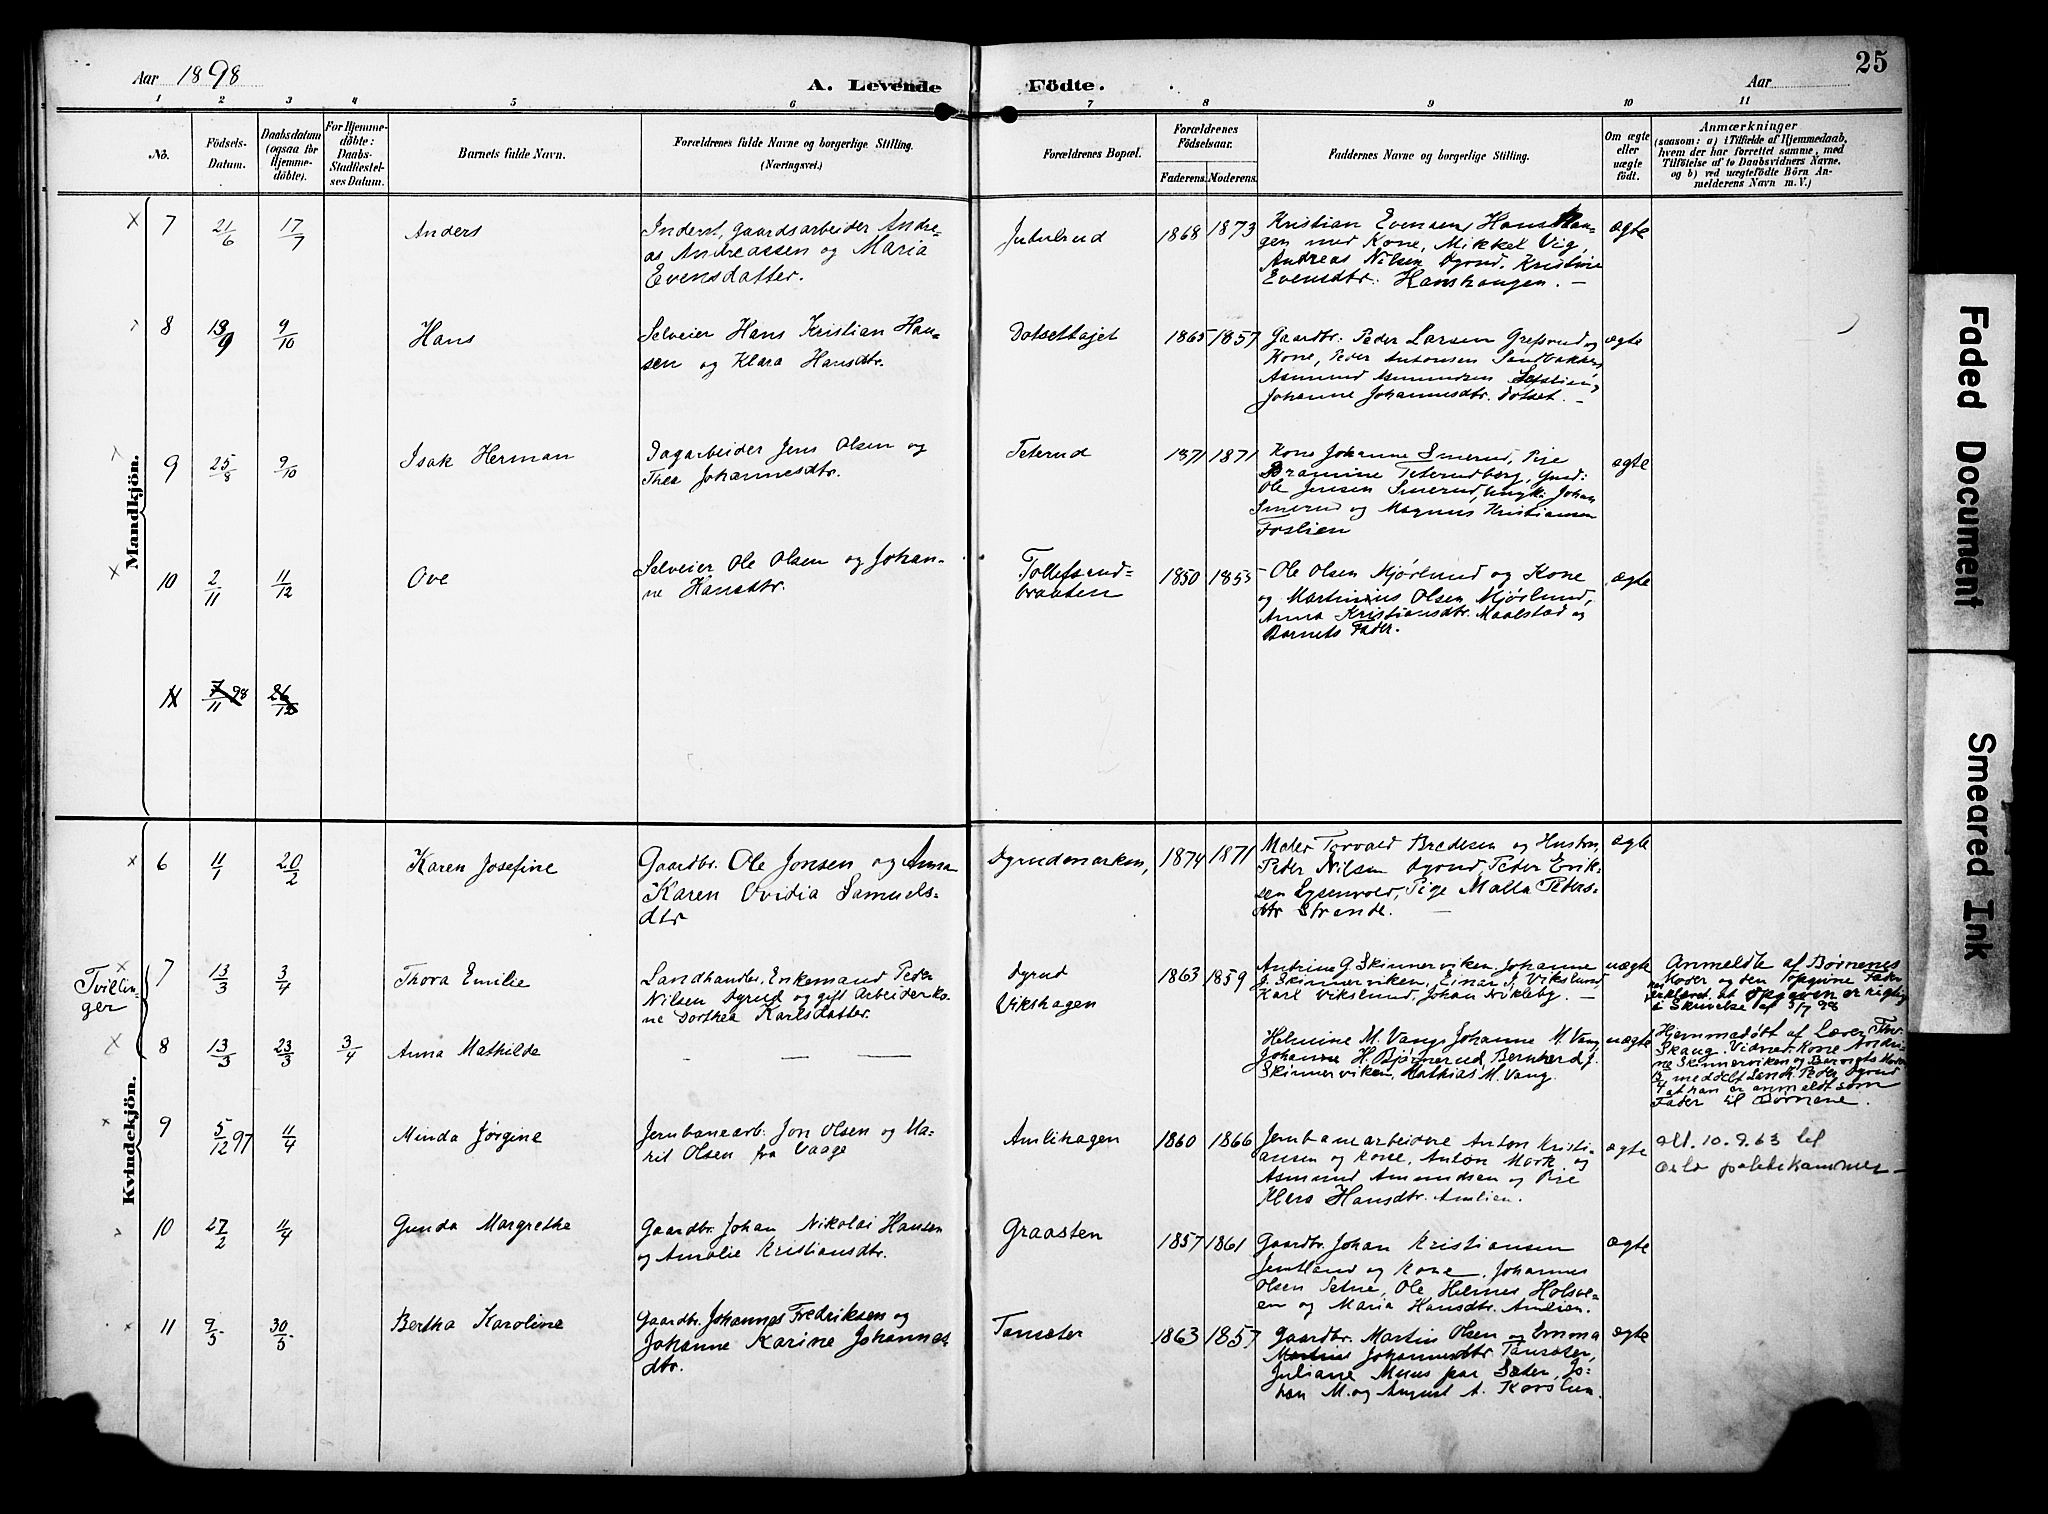 Aar 1898
A. Levende Födte.
Aar
25
1 2 3 4 5 6 7 8 9 10 11
No.
Födsels-Datum.
Daabsdatum (ogsaa for Hjemme-döbte).
For Hjemme-döbte: Daabs-Stadfæstel-ses Datum.
Barnets fulde Navn.
Forældrenes fulde Navne og borgerlige Stilling.
(Næringsvei.)
Forældrenes Bopæl.
Forældrenes Födselsaar.
Faderens. Moderens.
Faddernes Navne og borgerlige Stilling.
Om ægte eller uægte födt.
Anmærkninger
(saasom: a) i Tilfælde af Hjemmedaab,
hvem der har forrettet samme, med
Tilföielse af to Daabsvidners Navne.
og b) ved uægtefödte Börn An-
melderens Navn m. V.)
Mandkjön.
7 21/6 17/7 Anders
Inderst, gaardsarbeider Andre-
as Andreassen og Maria
Evensdatter.
Jutulrud 1868 1873
Kristian Evensen, Hanshau-
gen med Kone, Mikkel Vig,
Andreas Nilsen Dyrud, Kristine
Evensdtr. Hanshaugen. —
ægte
8 13/9 9/10 Hans
Selveier Hans Kristian Han-
sen og Klara Hansdtr.
Dotsethajet 1865 1857
Gaardbr. Peder Larsen Grefsrud og
Kone, Peder Antonsen Sandbakken,
Asmund Asmundsen
Johanne Johannesdtr. Dotset. —
ægte
9 25/8 9/10 Isak Herman
Dagarbeider Jens Olsen og
Thea Johannesdtr.
Teterud 1871 1871
Kone Johanne Smerud, Pige
Bramine Teterudberg, Ynd:
Ole Jensen Smerud, Ungk: Johan
Smerud og Magnus Kristiansen
Foslien
ægte
10 2/11 11/12 Ove
Selveier Ole Olsen og Johan-
ne Hansdtr.
Tollefsrud-
braaten
1850 1855
Ole Olsen Mjørlund og Kone
og Martinius Olsen Mjørlund,
Anna Kristiansdtr. Maalstad og
Barnets Fader.
ægte
11 7/11 98 26/12
Kvindekjön.
6 11/1 20/2 Karen Josefine
Gaardbr. Ole Jonsen og Anna
Karen Ovidia Samuels-
dtr
Dyrudmarken, 1874 1871
Maler Torvald Bredesen og Hustru,
Peder Nilsen Dyrud, Peder Erik-
sen Lysenvold, Pige Malla Peders-
dtr Strande. —
ægte
Tvillin-
ger
7 13/3 3/4 Thora Emilie
Landhandler, Enkemand Peder
Nilsen Dyrud og gift Arbeiderko-
ne Dorthea Karlsdatter.
Dyrud
Vikshagen
1863 1859
Andrine G. Skinnerviken, Johanne
J. Skinnerviken, Einar J. Vikslund
Karl Vikslund, Johan Nikleby. —
uægte
Anmeldte af Børnenes
Moder og den Opgivne Fader
erklæret, at Opgaven er rigtig
i Skrivelse af 3/7 98
8 13/3 23/3 3/4 Anna Mathilde
— — —
Helmine M. Vang, Johanne M. Vang
Johanne H. Bjørnerud, Bernhard J.
Skinnerviken, Mathias M. Vang.
uægte
Hjemmedøbt af Lærer Thv.
Skaug. Vidner: Kone Andri-
ne Skinnerviken og Barnets Moder
3/4 meddelt Landh. Peder Dyrud
at han er anmeldt som
Fader til Børnene.
9 5/12 97 11/4 Minda Jørgine
Jernbanearb. Jon Olsen og Ma-
rit Olsen fra Vaage
Amlihagen 1860 1866
Jernbanearbeiderne Anton Kristi-
ansen og Kone, Anton Mork og
Asmund Amundsen og Pige
Klara Hansdtr. Amlien.
ægte
att. 10.9.63 til
Oslo politikammer —
10 27/2 11/4 Gunda Margrethe
Gaardbr. Johan Nikolai Hansen
og Amalie Kristiansdtr.
Graasten 1857 1861
Gaardbr. Johan Kristiansen
Jemtland og Kone, Johannes
Olsen Setne, Ole Helmes Holsve-
en og Maria Hansdtr. Amlien.
ægte
11 9/5 30/5 Bertha Karoline
Gaardbr. Johannes Fredriksen og
Johanne Karine Johannes-
dtr.
Tansæter 1863 1857
Gaardbr. Martin Olsen og Emma
Johannesdtr. Tansæter,
Juliane Muus paa Sæter, Jo-
han M. og August A. Korslien.
ægte
Faded Document
Smeared Ink